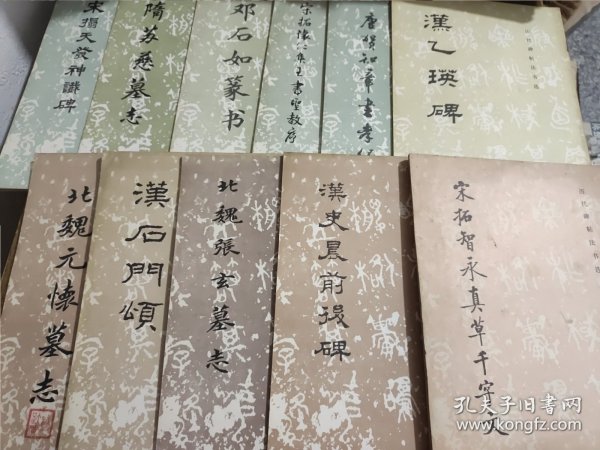 宋搨天發神讖碑
隋苏慈墓志
邓石如篆书
宋拓懷仁集王書聖教序
唐賀知章書孝
漢乙瑛碑
历代碑帖法书选
北魏元懷墓志
漢石門頌
北魏張玄墓志
漢史晨前後碑
宋拓智永真草千字文
历代碑帖法书选
孔夫子旧书网
www.kongfz.com